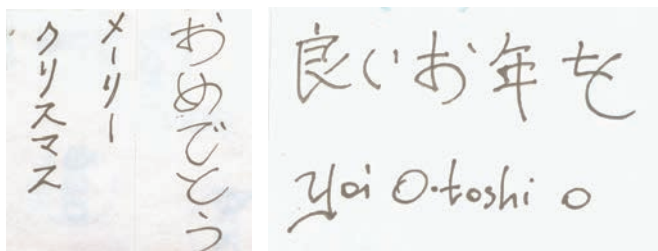 おめでとう
メーリー
クリスマス
良いお年を
Yoi O-toshi o